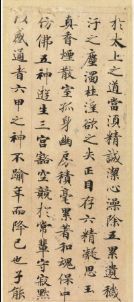 於太上之道當須精誠潔心澡除五累遺穢
汙之塵濁杜淫欲之失正目存六精凝思玉
真香煙散室孤身幽房積毫累著和魂保中
仿佛五神遊生三宮豁空競於常輩守寂默
以感通者六甲之神不踰年而降己也子能